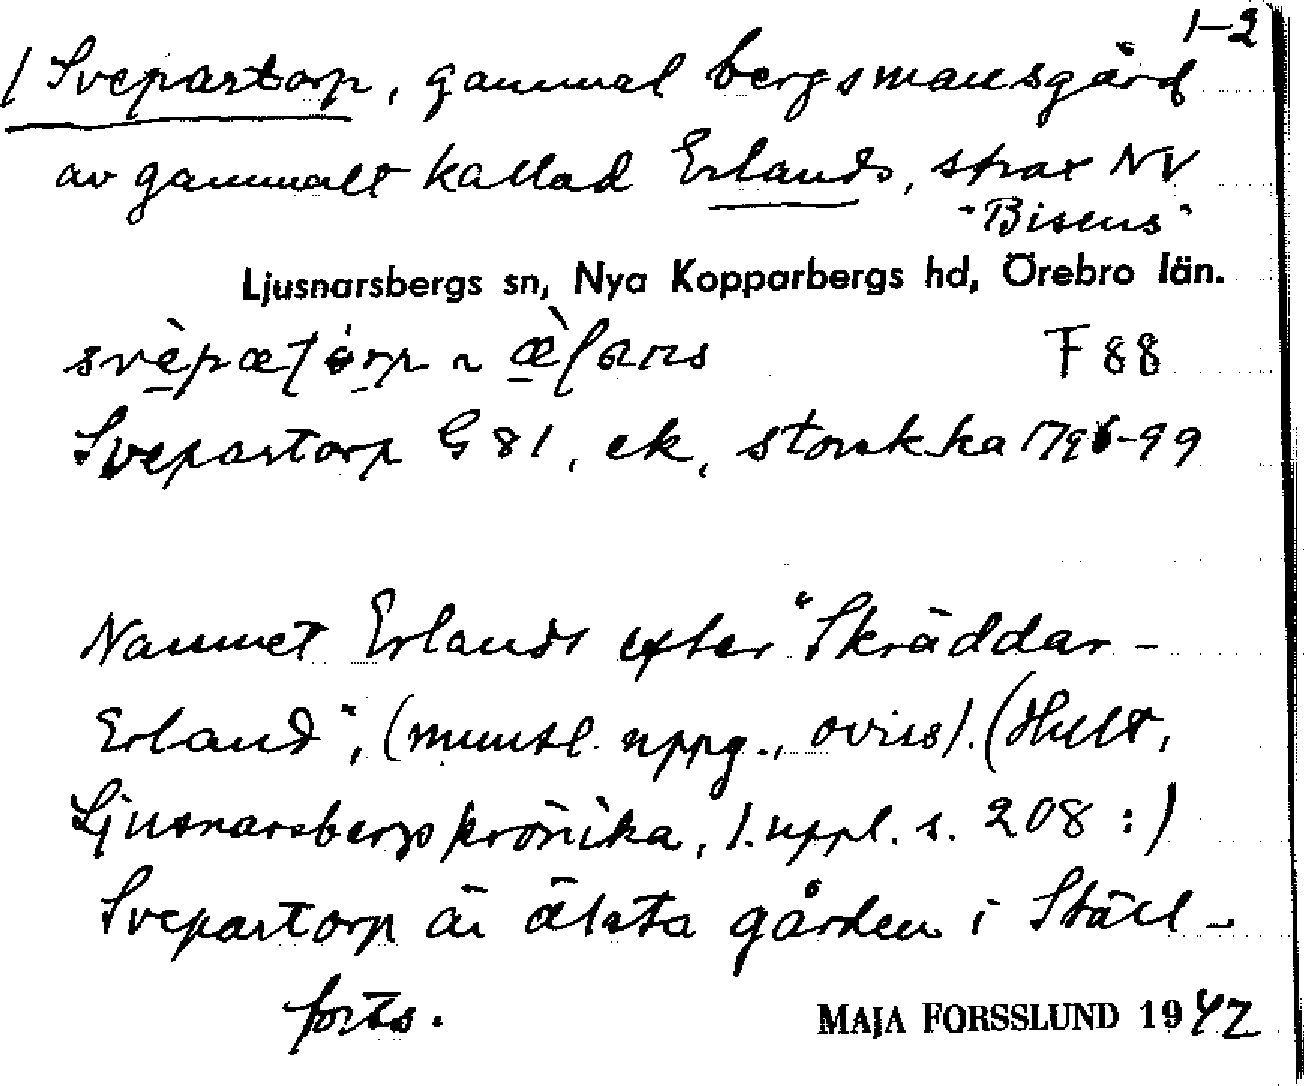 1-2
/ Svepartorp, gammal bergsmansgård
av gammalt kallad Erlands, strax NV
"Bisens"
Ljusnarsbergs sn, Nya Kopparbergs hd, Örebro län.
F 88
Svepartorp G 81, ek, storsk ka 1796-99
Namnet Erlands efter "Skräddar-
Erland", (muntl. uppg., oviss). (Hult,
Ljusnarsbergs krönika, 1. uppl. s. 208 :)
Svepartorp är älsta gården i Ställ-
forts.
MAJA FORSSLUND 1942